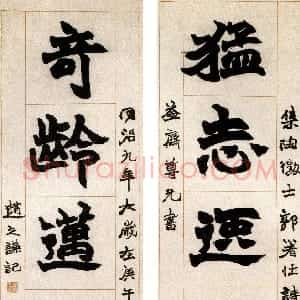 集陶徵士郭著仕詩
猛志逸
益齋尊兄書
同治九年太歲在庚午
奇齡邁
趙之謙記
Shufaziliao.com